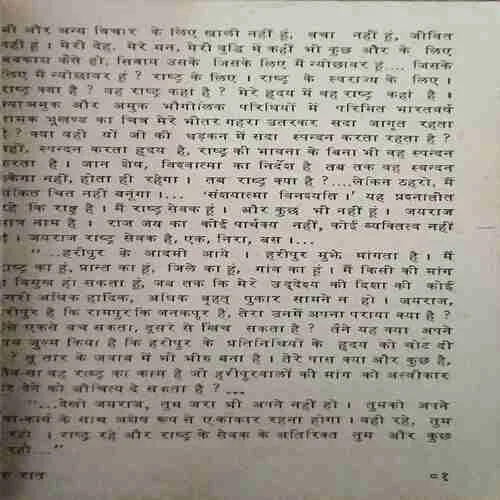 भी और अन्य विचार के लिए खाली नहीं हूं, बचा नहीं हूं, जीवित
नहीं हूं । मेरी देह, मेरे मन, मेरी बुद्धि में कहीं भी कुछ और के लिए
अवकाश कैसे हो, सिवाय उसके जिसके लिए मैं न्योछावर हूं.... जिसके
लिए मैं न्योछावर हूं ? राष्ट्र के लिए । राष्ट्र के स्वराज्य के लिए ।
राष्ट्र क्या है ? वह राष्ट्र कहां है ? मेरे हृदय में वह राष्ट्र कहां है ।
अमुक और अमुक भौगोलिक परिधियों में परिमित भारतवर्ष
नामक भूखण्ड का चित्र मेरे भीतर गहरा उतरकर सदा जागृत रहता
है ? क्या वही यों जी की धड़कन में सदा स्पन्दन करता रहता है ?
नहीं, स्पन्दन करता हृदय है, राष्ट्र की भावना के बिना भी वह स्पन्दन
करता है । जान शेष, विश्वात्मा का निर्देश है तब तक वह स्पन्दन
रुकेगा नहीं, होता ही रहेगा । तब राष्ट्र क्या है ?....लेकिन ठहरो, मैं
शंकित चित नहीं बनूंगा ।.... 'संशयात्मा विनश्यति ।' यह प्रश्नातीत
रहे कि राष्ट्र है । मैं राष्ट्र सेवक हूं । और कुछ भी नहीं हूं । जयराज
मात्र नाम है । राज जय का कोई पार्थक्य नहीं, कोई व्यक्तित्व नहीं
है । जयराज राष्ट्र सेवक है, एक, निरा, बस ।...
"...हरीपुर के आदमी आये । हरीपुर मुझे मांगता है । मैं
राष्ट्र का हूं, प्रान्त का हूं, जिले का हूं, गांव का हूं । मैं किसी की मांग
से विमुख हो सकता हूं, जब तक कि मेरे उद्देश्य की दिशा की कोई
दूसरी अधिक हार्दिक, अधिक बृहत् पुकार सामने न हो । जयराज,
हरीपुर है कि रामपुर कि जनकपुर है, तेरा उनमें अपना पराया क्या है ?
कि एकसे बच सकता, दूसरे से खिंच सकता है ? तैंने यह क्या अपने
जुल्म किया है कि हरीपुर के प्रतिनिधियों के हृदय को चोट दी
तू तार के जवाब में भी भीरु बना है । तेरे पास क्या और कुछ है,
वह राष्ट्र का काम है जो हरीपुरवालों की मांग को अस्वीकार
कर देने को औचित्य दे सकता है ? ...
"...देखो जयराज, तुम जरा भी अपने नहीं हो । तुमको अपने
कार्य के साथ अशेष रूप से एकाकार रहना होगा । वही रहे, तुम
रहो । राष्ट्र रहे और राष्ट्र के सेवक के अतिरिक्त तुम और कुछ
रहो...."
रात
८१